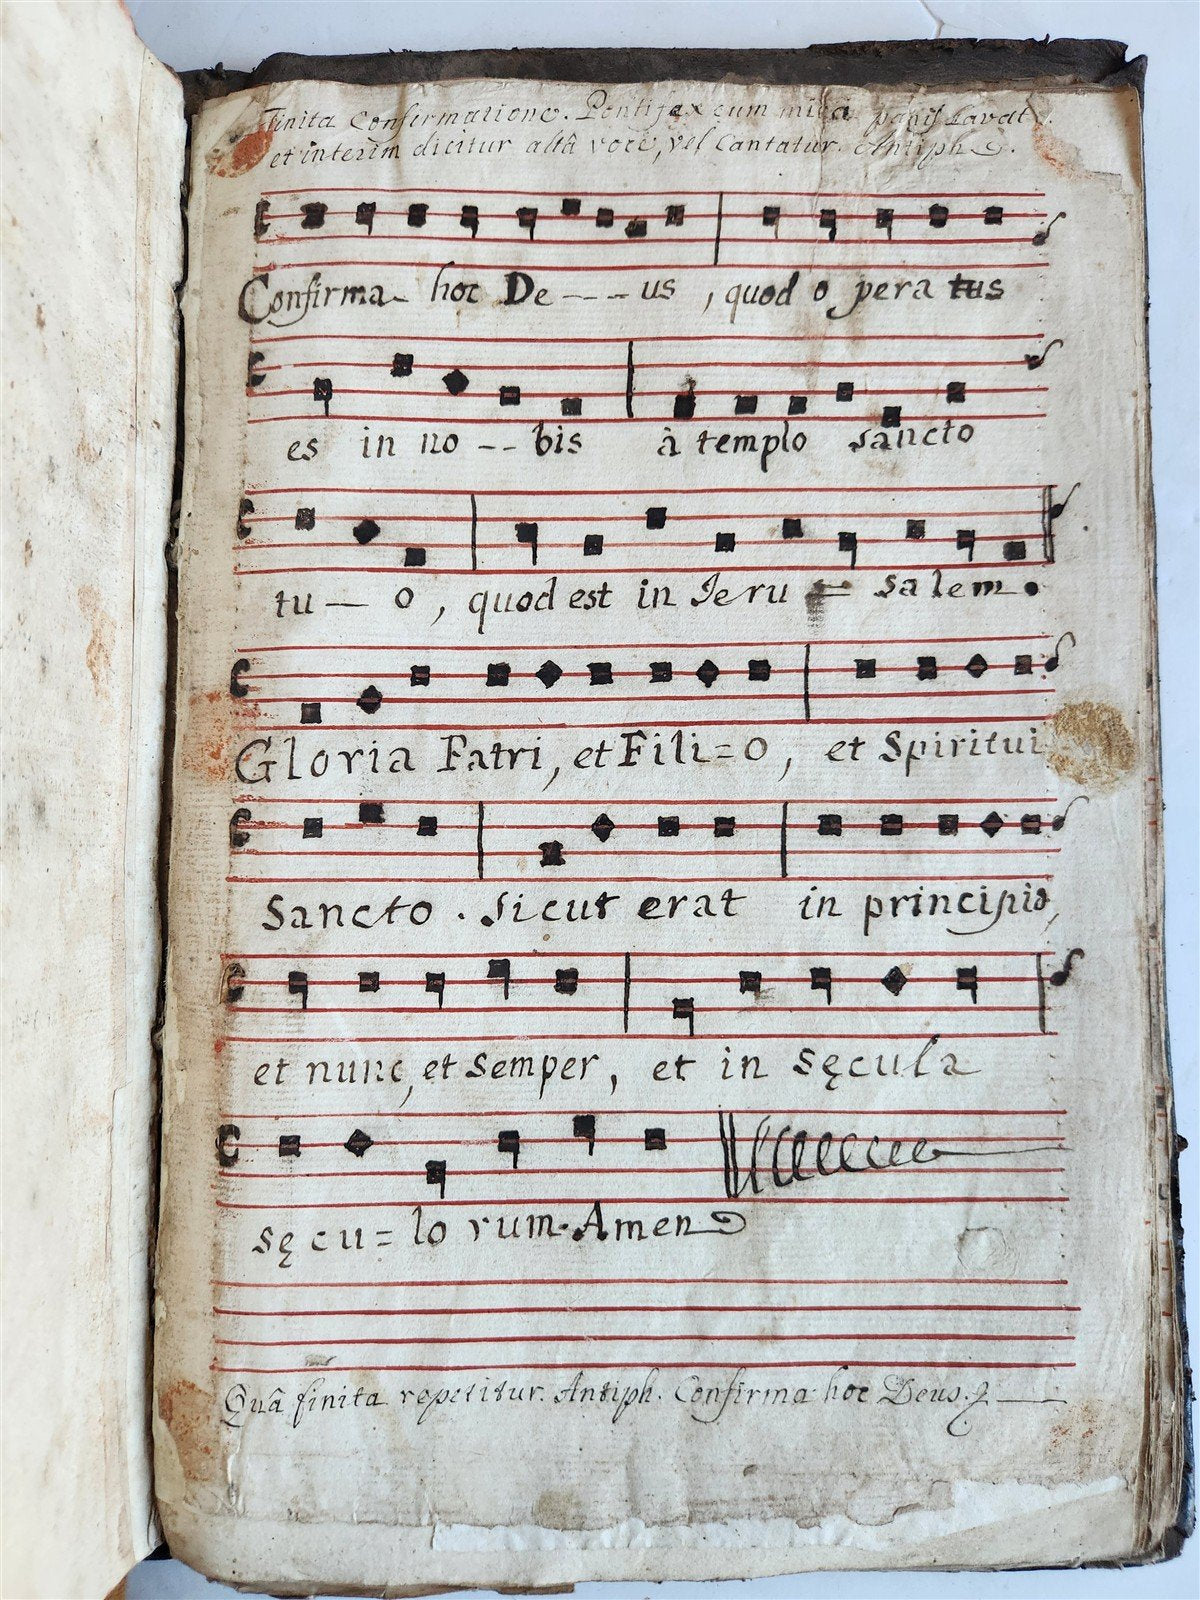 Finita Confirmatione. Pontifex cum mica panis Lavat.
et interim dicitur altâ voce, vel Cantatur. Antiph.
Confirma- hoc De---us, quod operatus
es in no--bis à templo sancto
tu—o, quod est in Jeru=salem.
Gloria Patri, et Fili=o, et Spiritui
Sancto. Sicut erat in principio,
et nunc, et semper, et in sęcula
sęcu=lorum. Amen
Quâ finita repetitur. Antiph. Confirma hoc Deus.